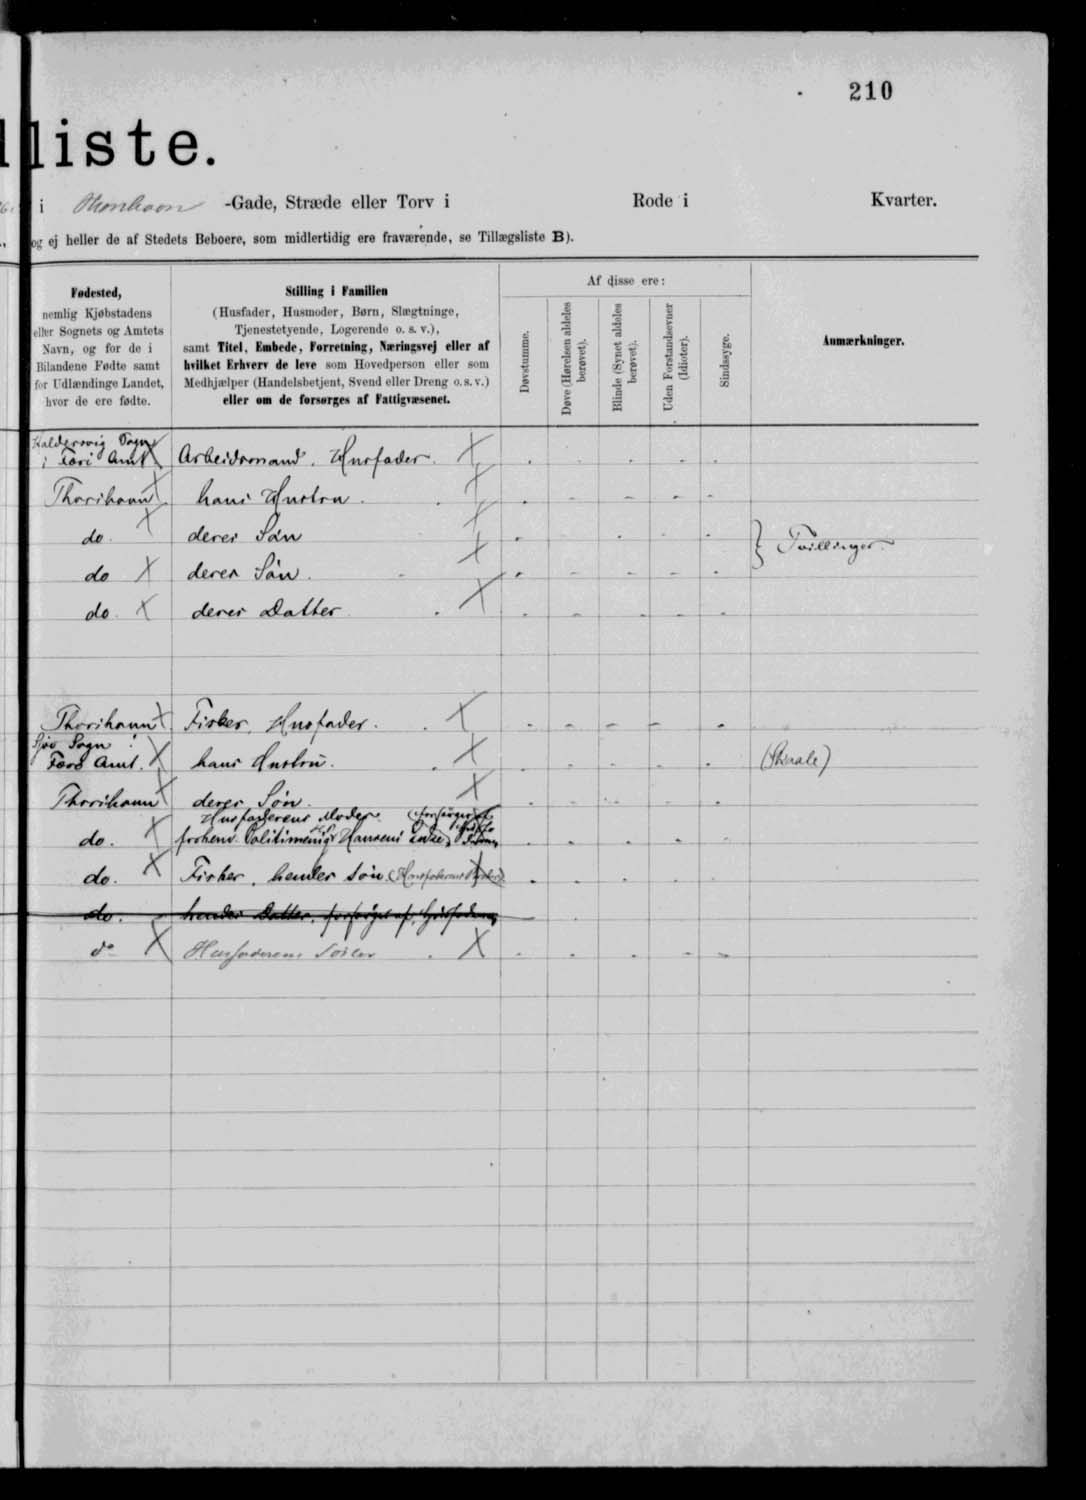 210
lliste.
i Thorshavn -Gade, Stræde eller Torv i Rode i Kvarter.
og ej heller de af Stedets Beboere, som midlertidig ere fraværende, se Tillægsliste B).
Fødested,
nemlig Kjøbstadens
eller Sognets og Amtets
Navn, og for de i
Bilandene Fødte samt
for Udlændinge Landet,
hvor de ere fødte.
Stilling i Familien
(Husfader, Husmoder, Børn, Slægtninge,
Tjenestetyende, Logerende o. s. v.),
samt Titel, Embede, Forretning, Næringsvej eller af
hvilket Erhverv de leve som Hovedperson eller som
Medhjælper (Handelsbetjent, Svend eller Dreng o. s. v.)
eller om de forsørges af Fattigvæsenet.
Af disse ere:
Døvstumme.
Døve (Hørelsen aldeles
berøvet).
Blinde (Synet aldeles
berøvet).
Uden Forstandsevner
(Idioter).
Sindssyge.
Anmærkninger.
Haldersvig Sogn
i Færø Amt Arbeidsmand. Husfader.
Thorshavn hans Hustru.
do. deres Søn
Tvillinger
do deres Søn.
do. deres Datter.
Thorshavn Fisker, Husfader.
Sjov Sogn
Færø Amt. hans Hustru. (Skaale)
Thorshavn deres Søn.
Husfaderens Moder
do. forhenv. Politimenig Hansens Enke
do. Fisker, hendes Søn
do. hendes Datter, forsørget af Husfaderen
do Husfaderens Søster